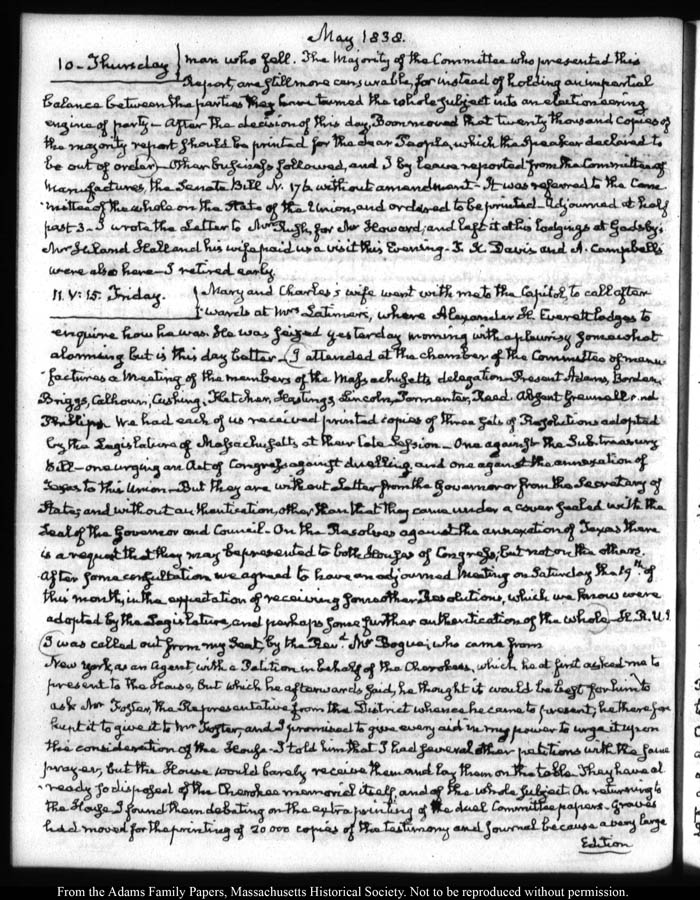 May 1838.
10 - Thursday } man who fell. The Majority of the Committee who presented this
Report, are still more censurable, for instead of holding an impartial
balance between the parties they have turned the whole subject into an electioneering
engine of party - After the decision of this day, Boon moved that twenty thousand copies of
the majority report should be printed for the dear People, which the Speaker declared to
be out of order - Other business followed, and I by leave reported from the Committee of
Manufactures, the Senate Bill N. 176 without amendment - It was referred to the Com-
mittee of the whole on the State of the Union, and ordered to be printed - Adjourned at half
past 3 - I wrote the Letter to Mr Rush, for Mr Howard, and left it at his lodgings at Gadsby's
Mr Hall and his wife paid us a visit this Evening. J. K. Davis and A. Campbell
were also here - I retired early.
11. V: 15. Friday. } Mary and Charles's wife went with me to the Capitol, to call after-
wards at Mrs Latimer's, where Alexander H. Everett lodges to
enquire how he was. He was seized yesterday morning with a pleurisy somewhat
alarming but is this day better - I attended at the chamber of the Committee of manu-
factures a Meeting of the members of the Massachusetts delegation Present Adams, Borden,
Briggs, Calhoun, Cushing, Fletcher, Hastings, Lincoln, Parmenter, Reed. Absent Grennell and
Phillips. We had each of us received printed copies of three sets of Resolutions adopted
by the Legislature of Massachusetts at their late Session - One against the Subtreasury
Bill - one urging an Act of Congress against duelling, and one against the annexation of
Texas to this Union - But they are without Letter from the Governor or from the Secretary of
State, and without authentication, other than that they came under a cover sealed with the
Seal of the Governor and Council. On the Resolves against the annexation of Texas there
is a request that they may be presented to both Houses of Congress; but not on the others.
After some consultation we agreed to have an adjourned Meeting on Saturday the 19th. of
this month, in the expectation of receiving some other Resolutions, which we know were
adopted by the Legislature, and perhaps some further authentication of the whole - H. R. U.S.
I was called out from my Seat, by the Revd. Mr Bogue; who came from
New York, as an agent, with a Petition in behalf of the Cherokees, which he at first asked me to
present to the House, but which he afterwards said, he thought it would be best for him to
ask Mr Foster, the Representative from the District whence he came to present; he therefore
kept it to give it to Mr Foster, and I promised to give every aid in my power to urge it upon
the consideration of the House - I told him that I had several other petitions with the same
prayer, but the House would barely receive them and lay them on the table. They have al-
ready so disposed of the Cherokee memorial itself, and of the whole subject. On returning to
the House I found them debating on the extra printing of the duel Committee papers - Graves
had moved for the printing of 20000 copies of the testimony and Journal because a very large
Edition
From the Adams Family Papers, Massachusetts Historical Society. Not to be reproduced without permission.